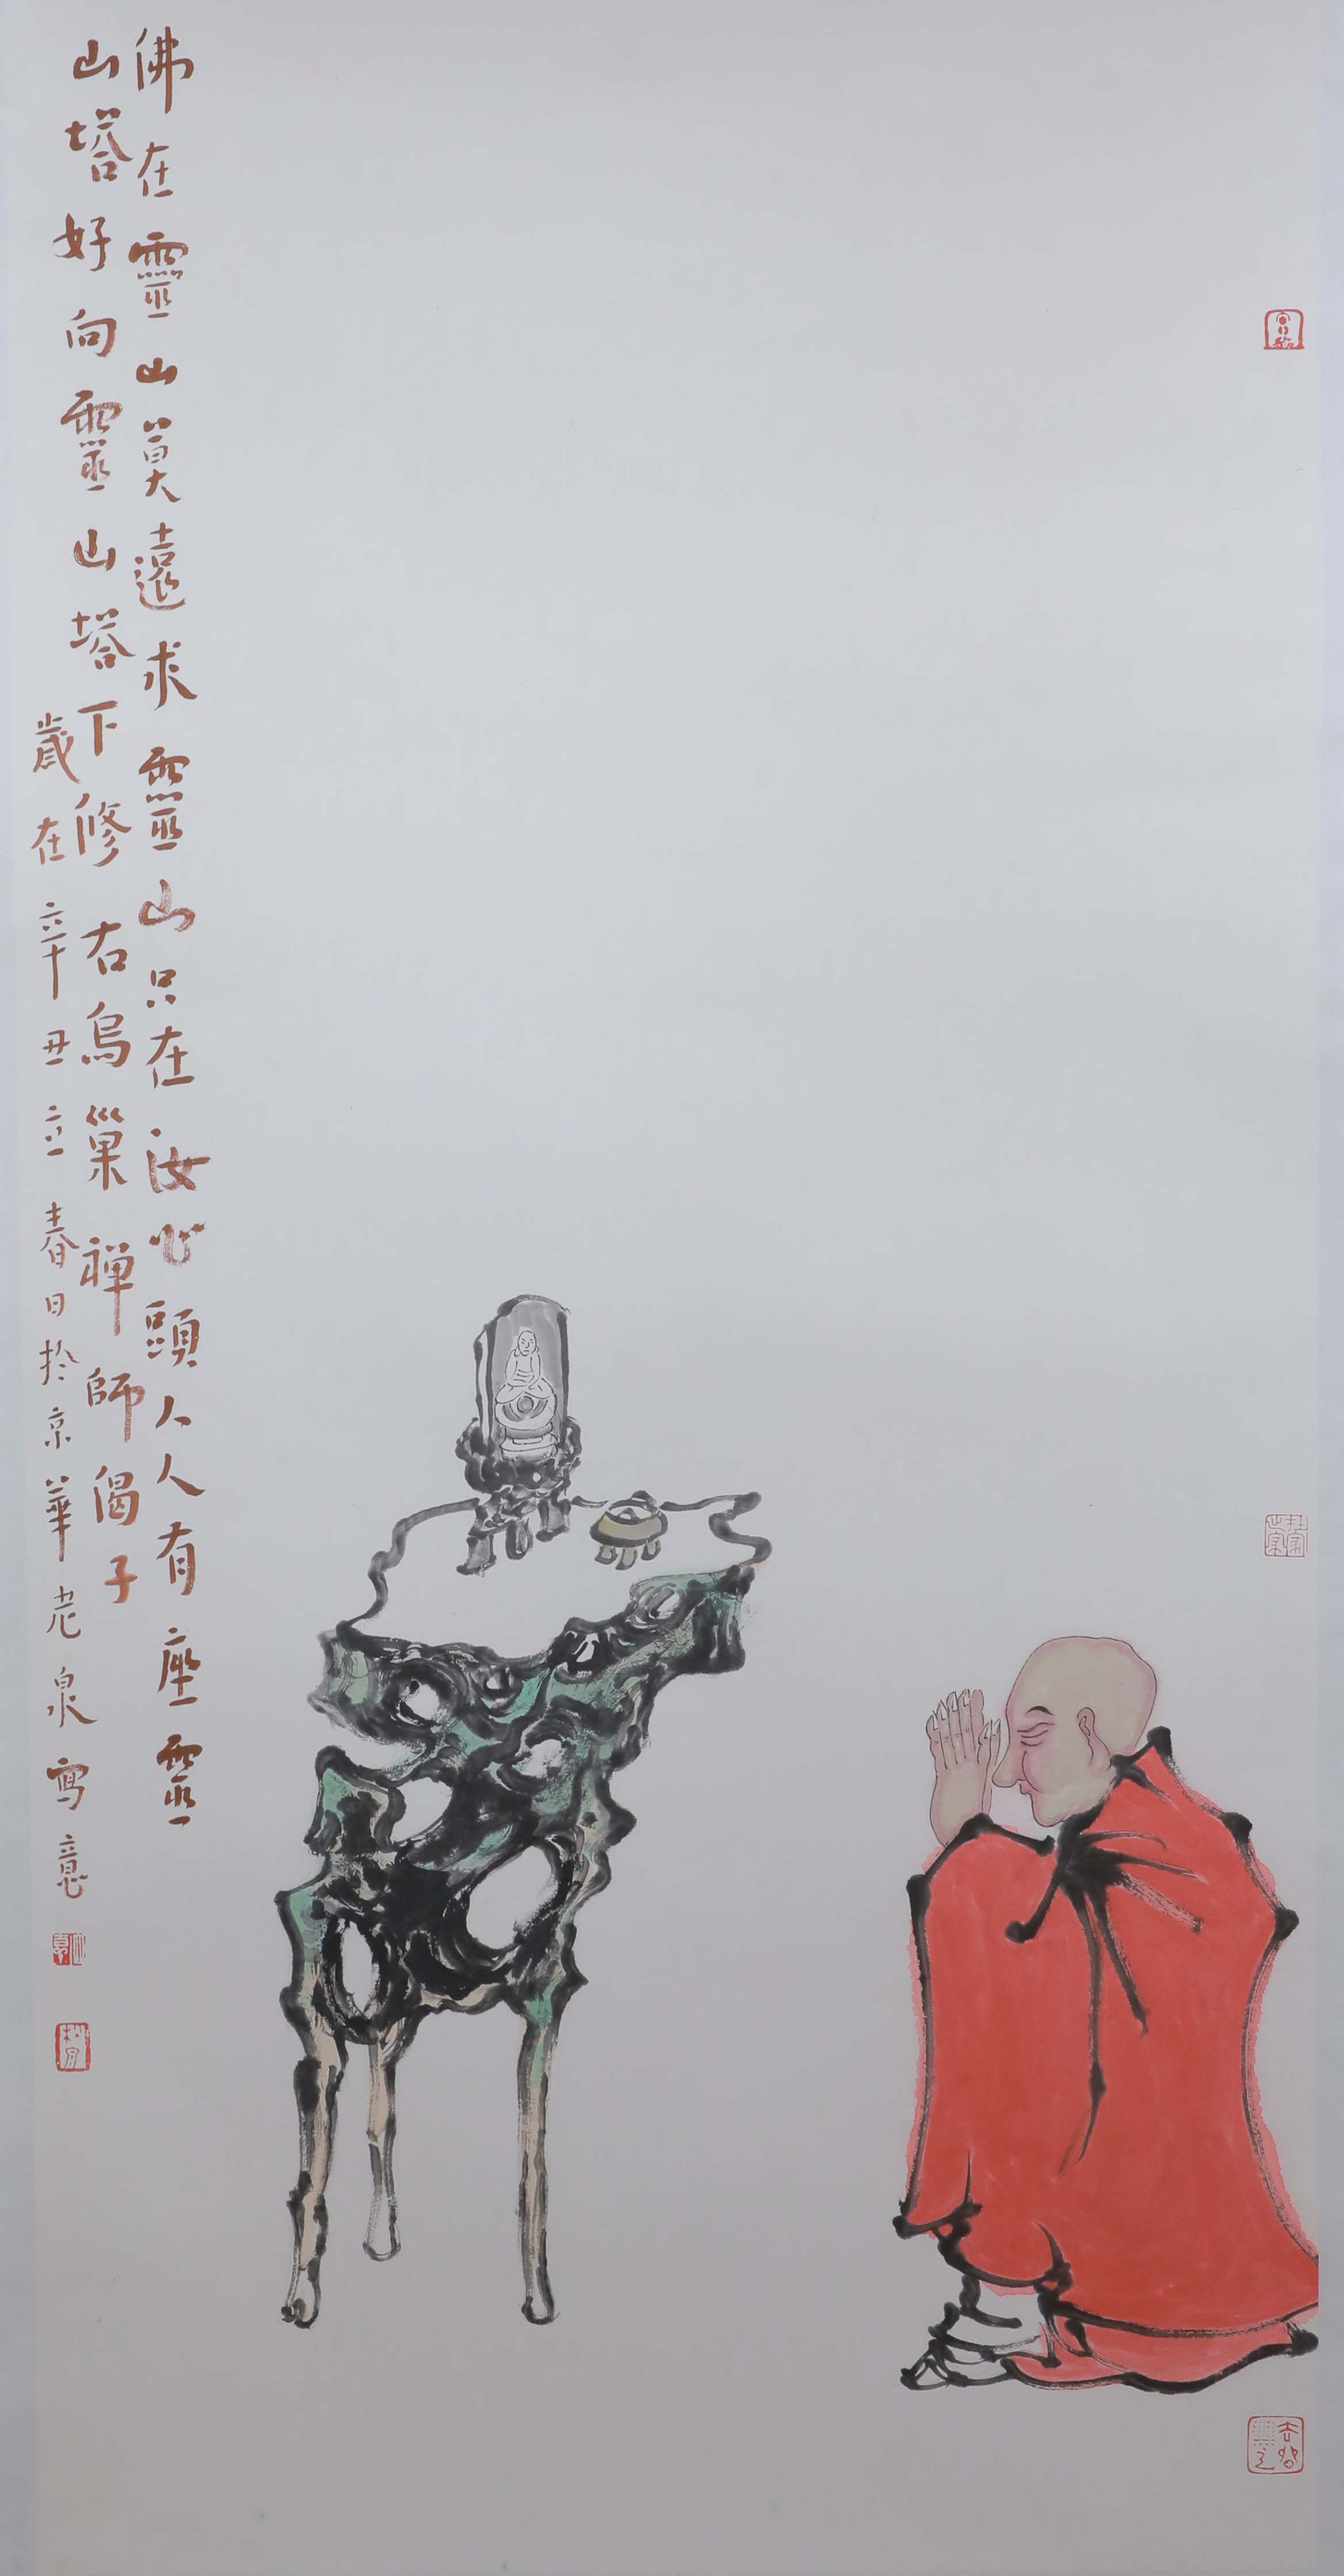 佛在靈山莫遠求靈山只在汝心頭人人有座靈
山塔好向靈山塔下修右烏巢禪師偈子
歲在辛丑立春日於京華老泉寫意